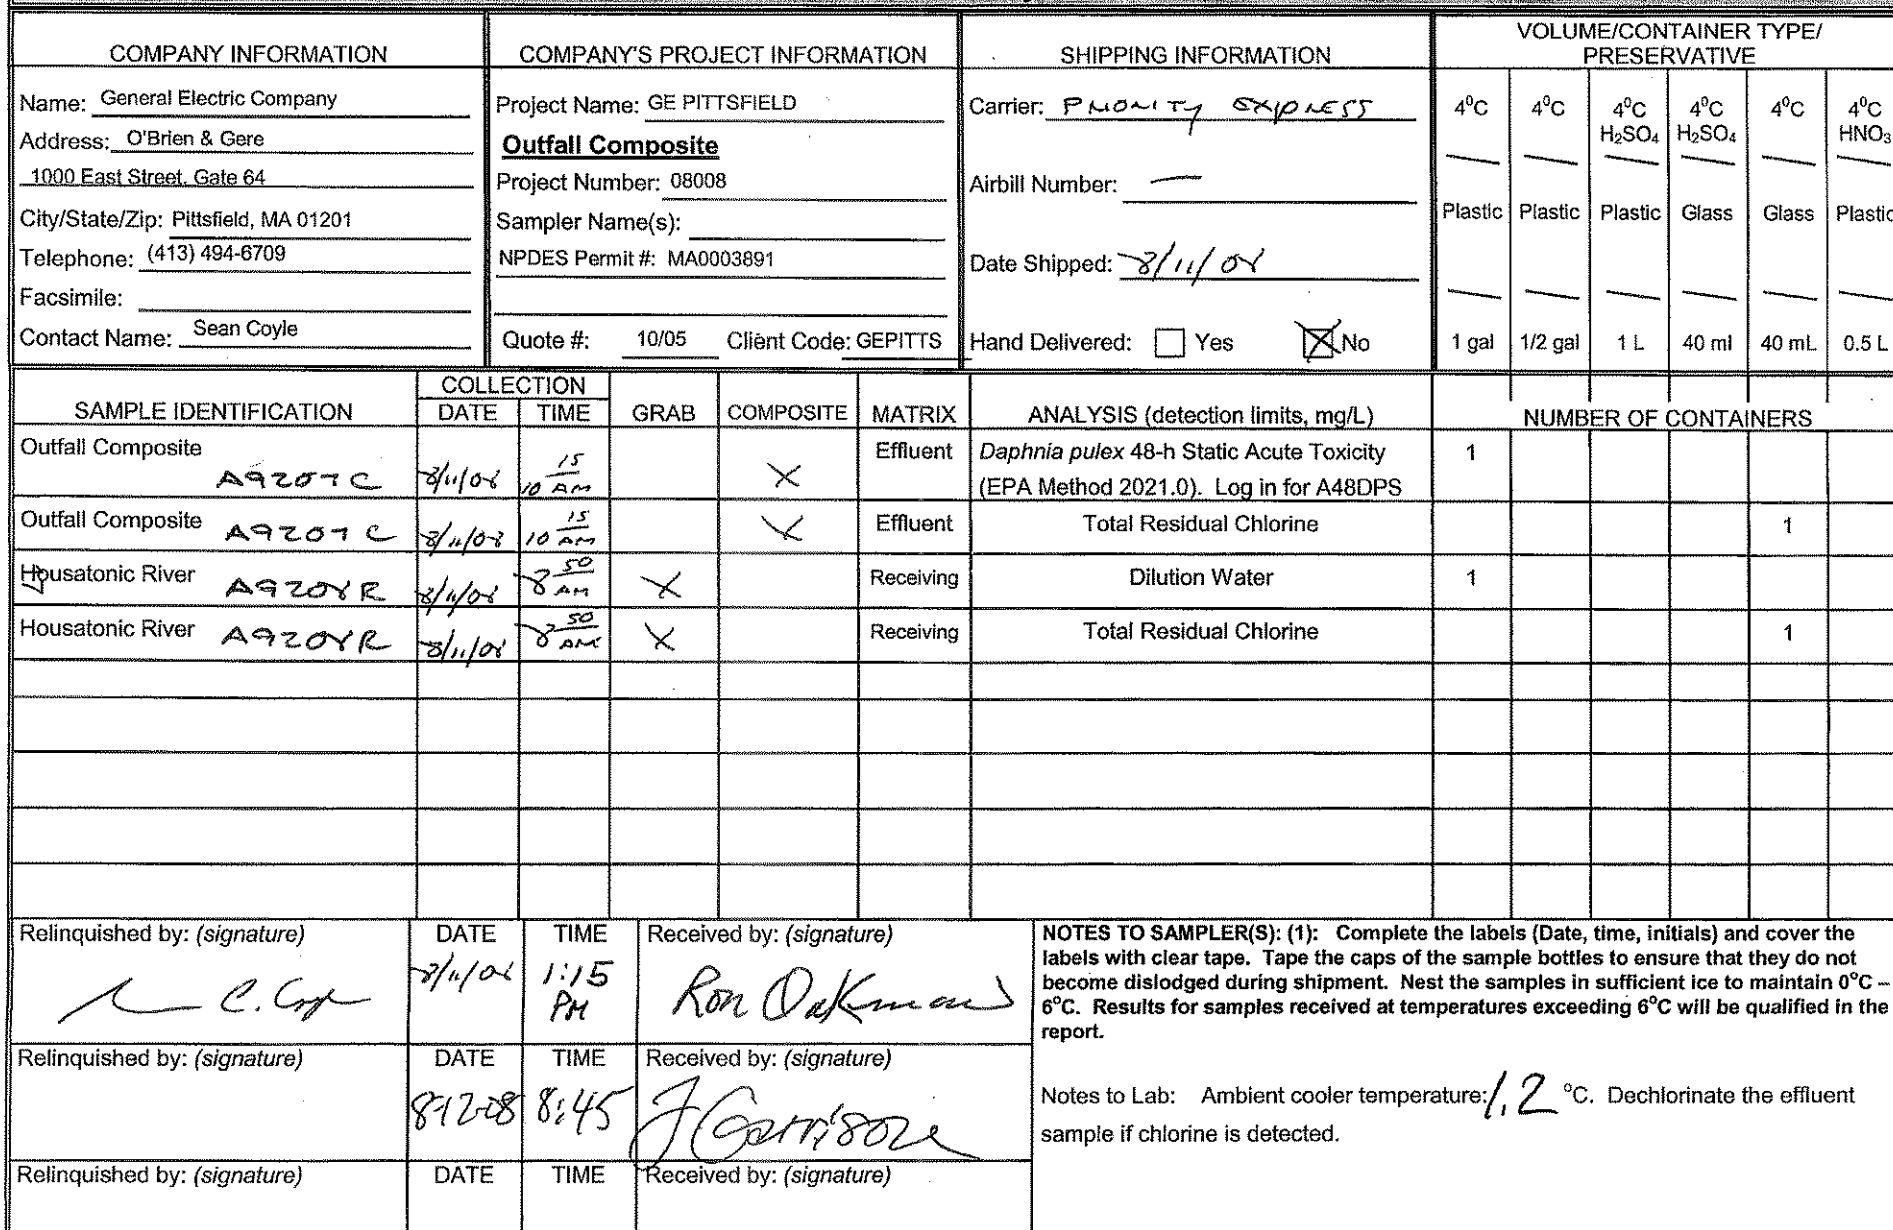 COMPANY INFORMATION
Name: General Electric Company
Address: O'Brien & Gere
1000 East Street, Gate 64
City/State/Zip: Pittsfield, MA 01201
Telephone: (413) 494-6709
Facsimile:
Contact Name: Sean Coyle
COMPANY'S PROJECT INFORMATION
Project Name: GE PITTSFIELD
Outfall Composite
Project Number: 08008
Sampler Name(s):
NPDES Permit #: MA0003891
Quote #: 10/05 Client Code: GEPITTS
SHIPPING INFORMATION
Carrier: PRIORITY EXPRESS
Airbill Number: —
Date Shipped: 8/11/08
Hand Delivered: Yes No
VOLUME/CONTAINER TYPE/
PRESERVATIVE
4⁰C 4⁰C 4⁰C 4⁰C 4⁰C 4⁰C
H₂SO₄ H₂SO₄ HNO₃
Plastic Plastic Plastic Glass Glass Plastic
1 gal 1/2 gal 1 L 40 ml 40 mL 0.5 L
COLLECTION
SAMPLE IDENTIFICATION DATE TIME GRAB COMPOSITE MATRIX ANALYSIS (detection limits, mg/L) NUMBER OF CONTAINERS
Outfall Composite A9207C 8/11/08 10 15 AM X Effluent Daphnia pulex 48-h Static Acute Toxicity 1
(EPA Method 2021.0). Log in for A48DPS
Outfall Composite A9207C 8/11/08 10 15 AM X Effluent Total Residual Chlorine 1
Housatonic River A9208R 8/11/08 8 50 AM X Receiving Dilution Water 1
Housatonic River A9208R 8/11/08 8 50 AM X Receiving Total Residual Chlorine 1
Relinquished by: (signature) DATE TIME Received by: (signature)
8/11/08 1:15 PM Ron Oakman
Relinquished by: (signature) DATE TIME Received by: (signature)
8-12-08 8:45 J Garrison
Relinquished by: (signature) DATE TIME Received by: (signature)
NOTES TO SAMPLER(S): (1): Complete the labels (Date, time, initials) and cover the
labels with clear tape. Tape the caps of the sample bottles to ensure that they do not
become dislodged during shipment. Nest the samples in sufficient ice to maintain 0°C –
6°C. Results for samples received at temperatures exceeding 6°C will be qualified in the
report.
Notes to Lab: Ambient cooler temperature: 1.2 °C. Dechlorinate the effluent
sample if chlorine is detected.